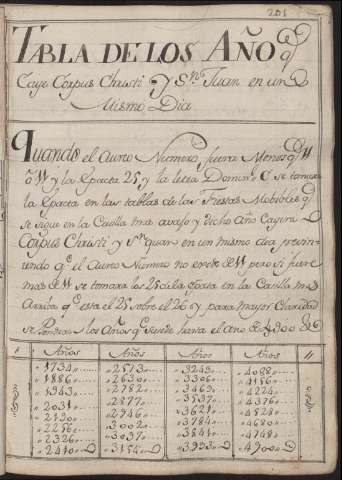 201
TABLA DE LOS AÑOS q
Caye Corpus Christi Y Sn Juan en un
Mismo Dia
Quando el Aureo Numero fuere Menos q 11
ò 11 y la Epacta 25, y la letra Domin C se tomara
la Epacta en las tablas de las Fiestas Mobibles q
se sigue en la Casilla mas avajo y dicho Año Cayera
Corpus Christi y Sn Juan en un mismo dia previn
iendo q el Aureo Numero no exede de 11 pero si fuere
mas de 11 se tomara los 25 de la Epacta en la Casilla
Arriba q esta el 25 sobre el 26 y para Mayor Claridad
se Pondran los Años q hasta el ano de 4900
Años Años Años Años
1734 2573 3249 4088
1886 2630 3306 4156
1943 2782 3463 4224
2031 2877 3537 4376
2190 2946 3621 4528
2256 3002 3784 4680
2326 3037 3841 4748
2410 3154 3953 4900